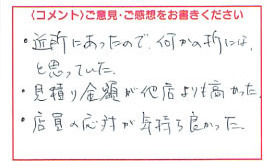 〈コメント〉ご意見・ご感想をお書きください
・近所にあったので、何かの折には、
と思っていた。
・見積り金額が他店よりも高かった。
・店員の応対が気持ち良かった。